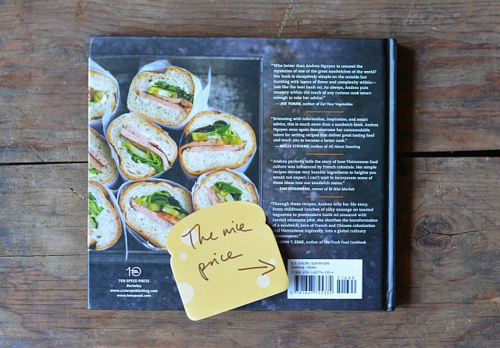 "Who better than Andrea Nguyen to unravel the
mysteries of one of the great sandwiches of the world?
Her book is deceptively simple on the outside but
bursting with layers of flavor and complexity within—
just like the best banh mi. As always, Andrea puts
mastery within the reach of any curious cook smart
enough to take her advice."
— JOE YONAN, author of Eat Your Vegetables
"Brimming with information, inspiration, and smart
advice, this is much more than a sandwich book. Andrea
Nguyen once again demonstrates her commendable
talent for writing recipes that deliver great tasting food
and teach you to become a better cook."
— MOLLY STEVENS, author of All About Roasting
"Andrea perfectly tells the story of how Vietnamese food
culture was influenced by French colonials. Her simple
recipes elevate very humble ingredients to heights you
would not expect. I can't wait to incorporate some of
these ideas into our sandwich menu."
— SAM MOGANNAM, owner of Bi-Rite Market
"Through these recipes, Andrea tells her life story.
From childhood lunches of silky sausage on toasted
baguettes to
the transformation
of a sandwich, born of French and Chinese colonization
and Vietnamese ingenuity, into a global culinary
T. EDGE, author of The Truck Food Cookbook
The nice
price
TEN SPEED PRESS
Berkeley
www.crownpublishing.com
www.tenspeed.com